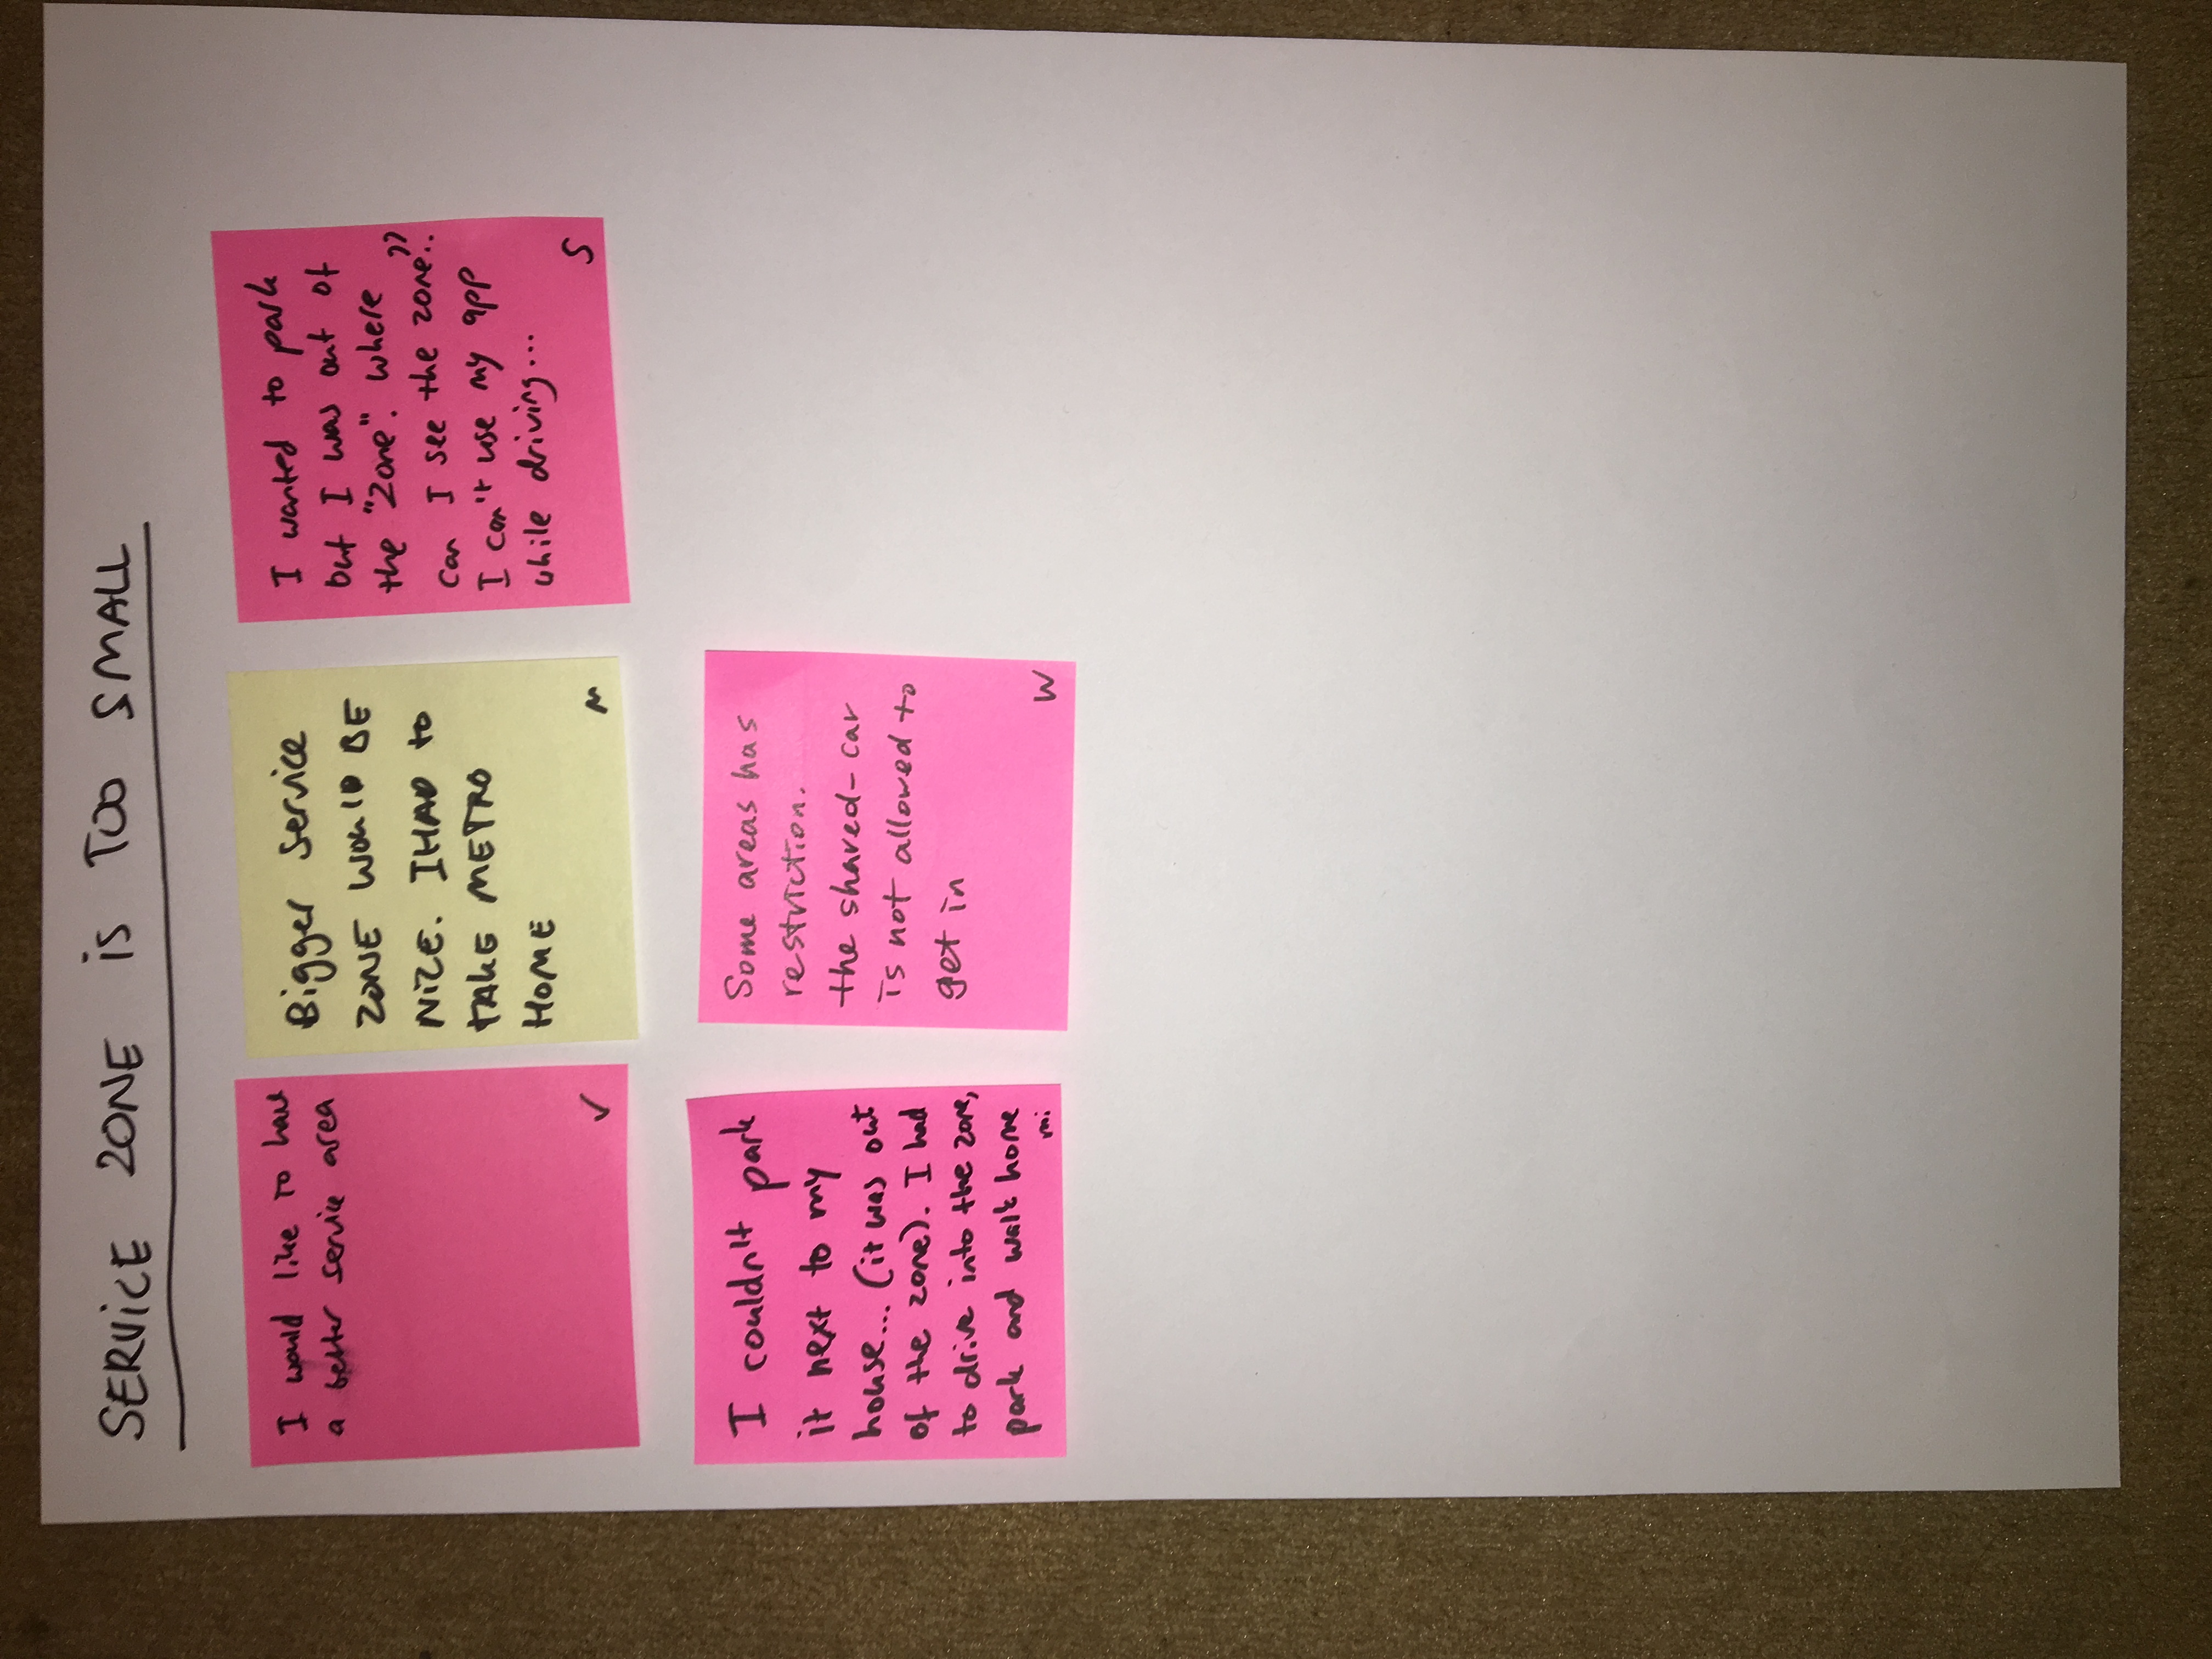 SERViCE ZONE iS TOO SMALL
I would like to have
a better service area
✓
Bigger Service
ZONE WOULD BE
NIZE. I HAD to
TAKE METRO
HOME
M
I wanted to park
but I was out of
the "Zone". Where
can I see the zone??
I can't use my app
while driving...
S
I couldn't park
it next to my
house... (it was out
of the zone). I had
to drive into the zone,
park and walk home
mi
Some areas has
restriction.
the shared-car
is not allowed to
get in
W